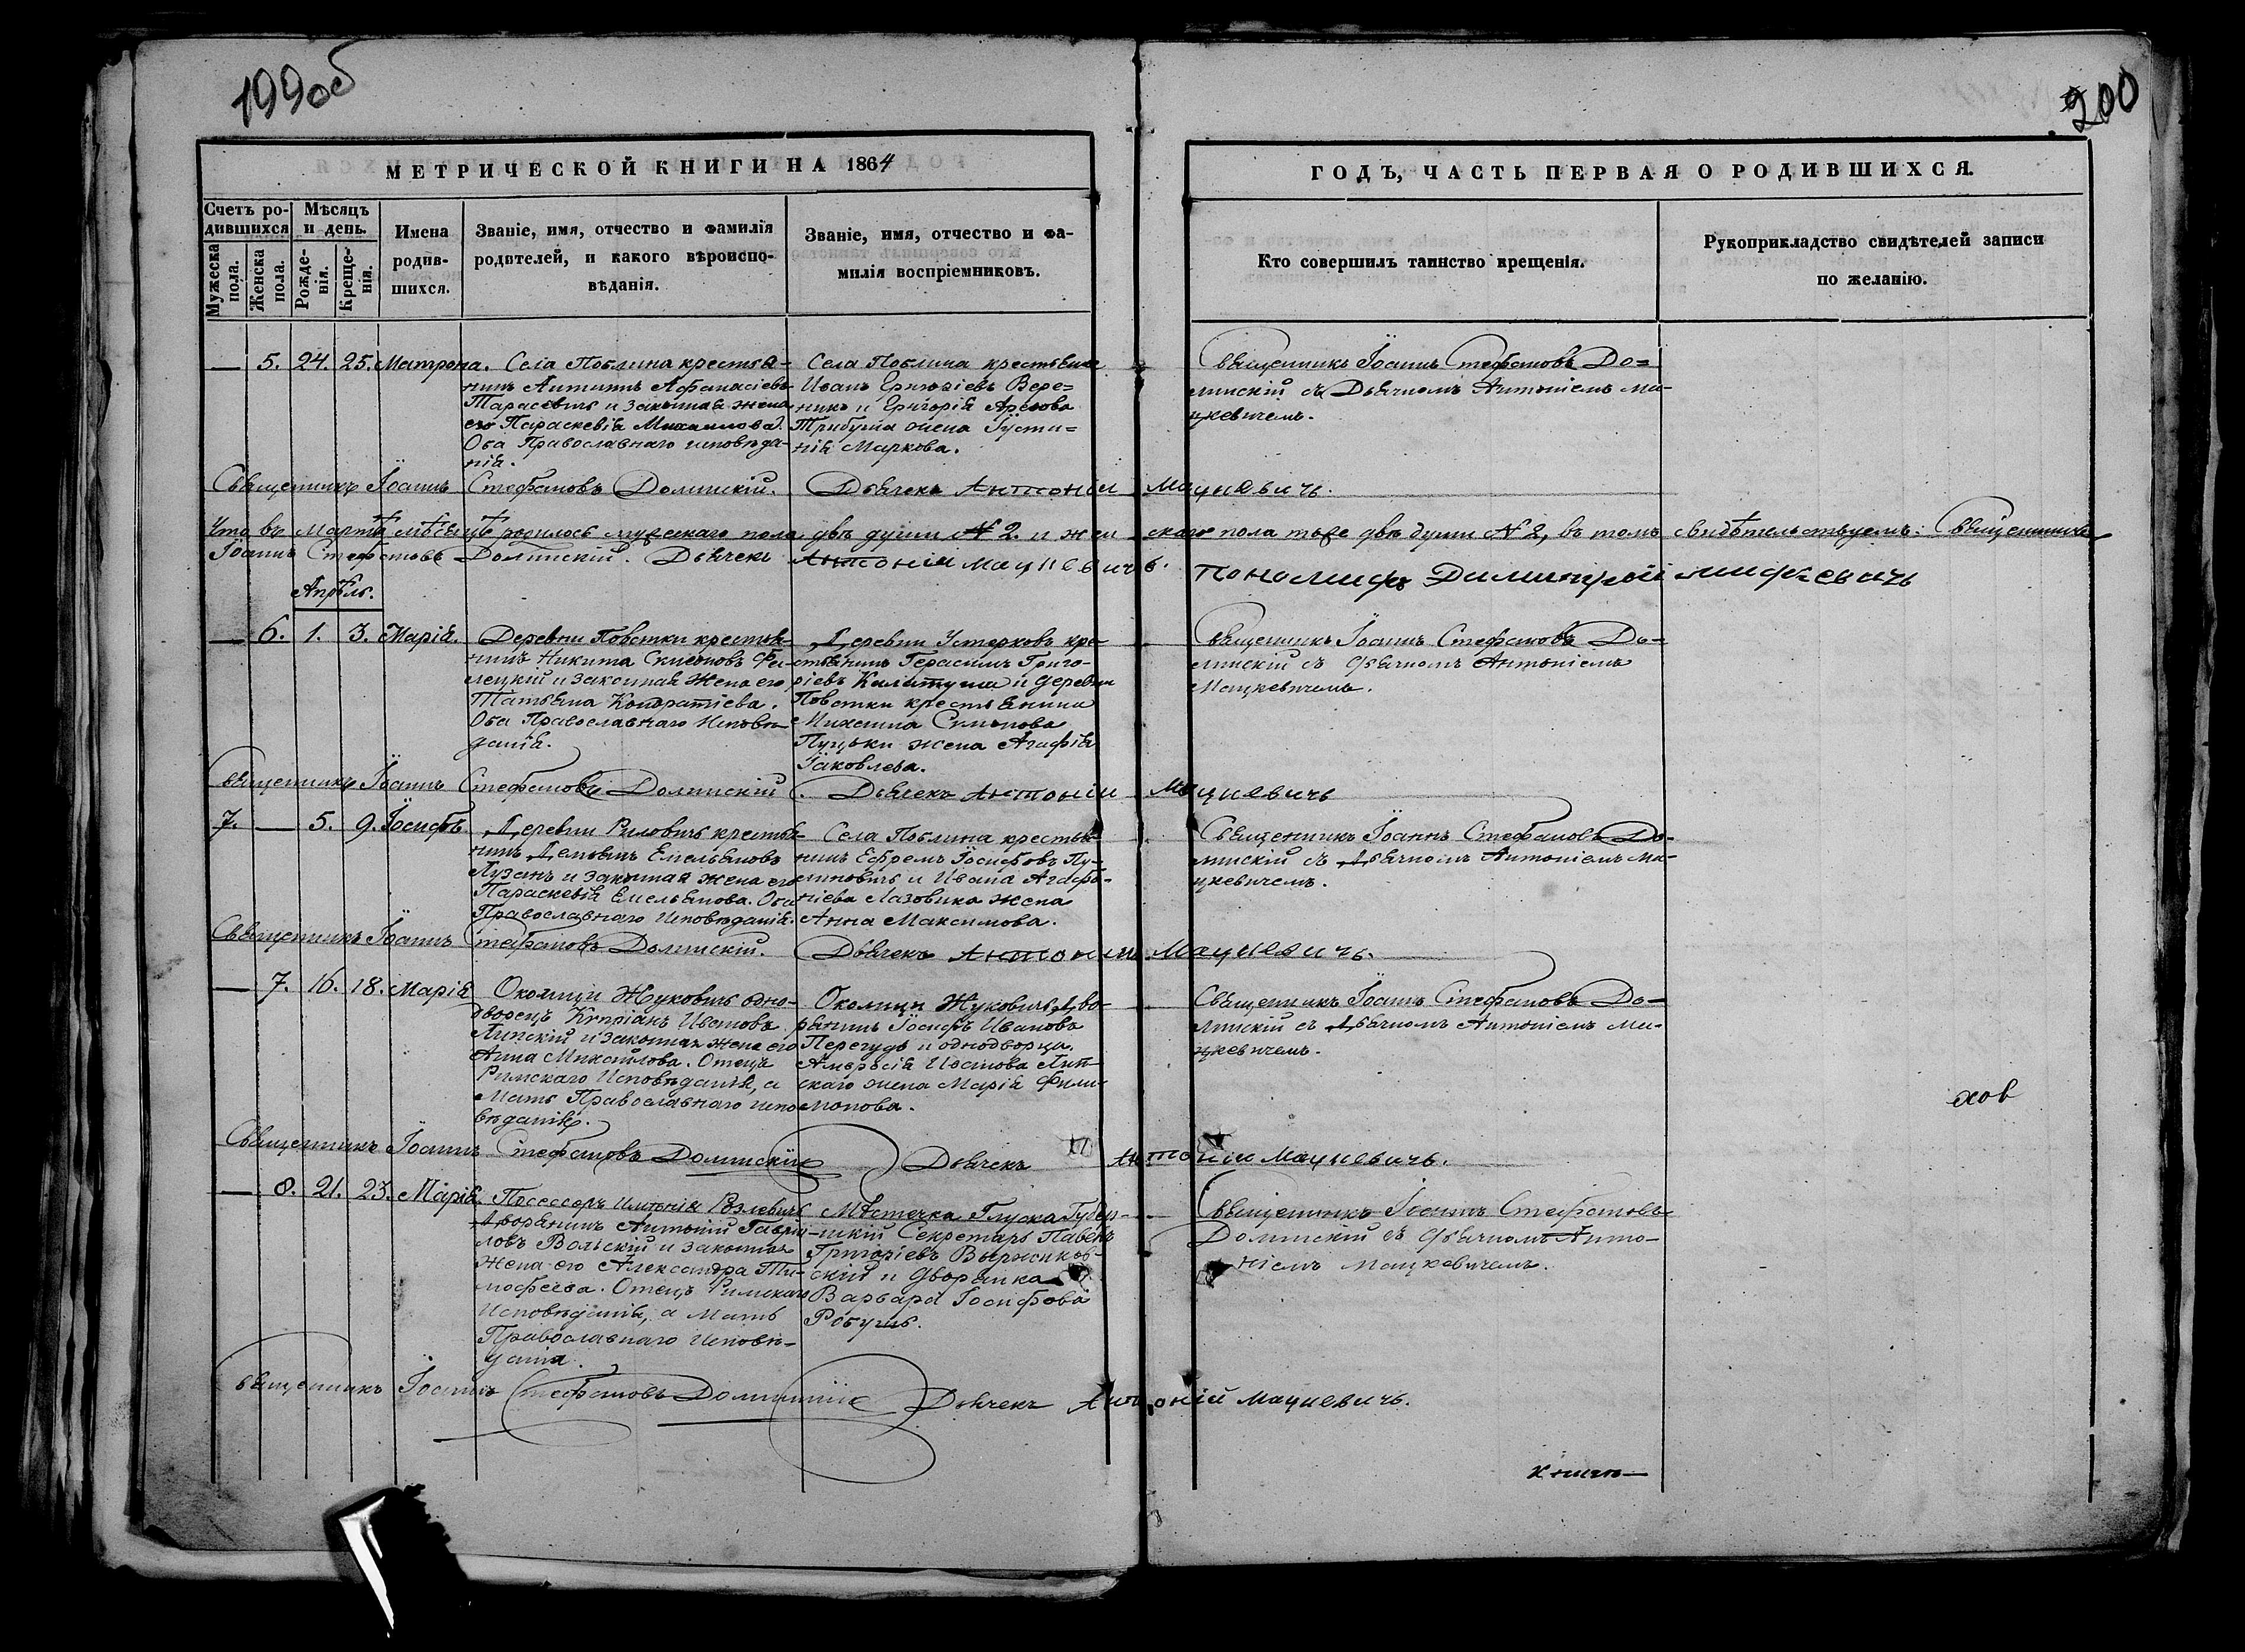 199об
200
МЕТРИЧЕСКОЙ КНИГИ НА 1864
ГОДЪ, ЧАСТЬ ПЕРВАЯ О РОДИВШИХСЯ.
Счетъ ро-
дившихся
Мужеска
пола.
Женска
пола.
Мѣсяцъ
и день.
Рожде-
нія.
Креще-
нія.
Имена
родив-
шихся.
Званіе, имя, отчество и фамилія
родителей, и какого вѣроиспо-
вѣданія.
Званіе, имя, отчество и фа-
милія воспріемниковъ.
Кто совершилъ таинство крещенія.
Рукоприкладство свидѣтелей записи
по желанію.
— 5. 24. 25. Матрона.
Села Поблина крестья-
нинъ Антипъ Афанасіевъ
Тарасевичъ и законная жена
его Параскевія Михаилова.
Оба Православнаго исповѣда-
нія.
Села Поблина крестьяне
Иванъ Григоріевъ Вере-
никъ и Григорія
жена Іусти-
нія Маркова.
Священникъ Іоаннъ Стефановъ До-
линскій съ Дьячкомъ Антоніемъ Ма-
цкевичемъ.
Священникъ Іоаннъ Стефановъ Долинскій. Дьячекъ Антоній Мацкевичъ.
Что въ Мартѣ мѣсяцѣ родилось мужескаго пола двѣ души № 2. и женскаго пола тоже двѣ души № 2, въ томъ свидѣтельствуемъ: Священникъ
Іоаннъ Стефановъ Долинскій. Дьячекъ Антоній Мацкевичъ. Пономарь Димитрій
Апрѣль.
— 6. 1. 3. Марія.
Деревни Повстки крестья-
нинъ Никита Симеоновъ Фе-
лецкій и законная жена его
Татьяна Кондратіева.
Оба Православнаго Исповѣ-
данія.
Деревни Устерковъ кре-
стьянинъ Герасимъ Григо-
ріевъ Калатуша и деревни
Повстки крестьянина
Михаила Симонова
Пуцьки жена Агафія
Іаковлева.
Священникъ Іоаннъ Стефановъ До-
линскій съ дьячкомъ Антоніемъ
Мацкевичемъ.
Священникъ Іоаннъ Стефановъ Долинскій. Дьячекъ Антоній Мацкевичъ
7. — 5. 9. Іосифъ.
Деревни Риловичъ крестья-
нинъ Демьянъ Емельяновъ
Лузанъ и законная жена его
Параскевія Емельянова. Оба
Православнаго Исповѣданія.
Села Поблина крестья-
нинъ Ефремъ Іосифовъ Пу-
линовичъ и Ивана Агафо-
ніева Лазовика жена
Анна Максимова.
Священникъ Іоаннъ Стефановъ До-
линскій съ Дьячкомъ Антоніемъ Ма-
цкевичемъ.
Священникъ Іоаннъ Стефановъ Долинскій. Дьячекъ Антоній Мацкевичъ.
— 7. 16. 18. Марія
Околицы Жуковичъ одно-
дворецъ Кипріанъ Ивановъ
Липскій и законная жена его
Анна Михайлова. Отецъ
Римскаго Исповѣданія, а
Мать Православнаго испо-
вѣданія.
Околицы Жуковичъ Дво-
рянинъ Іосифъ Ивановъ
Перегудъ и однодворца
Амвросія Иванова Лип-
скаго жена Марія Фили-
монова.
Священникъ Іоаннъ Стефановъ До-
линскій съ Дьячкомъ Антоніемъ Ма-
цкевичемъ.
хов
Священникъ Іоаннъ Стефановъ Долинскій Дьячекъ Антоній Мацкевичъ.
— 8. 21. 23. Марія.
Посессоръ имѣнія Козловичъ
Дворянинъ Антоній Гаврі-
ловъ Вольскій и законная
жена его Александра Ти-
мофеева. Отецъ Римскаго
Исповѣданія, а Мать
Православнаго Исповѣ-
данія.
Мѣстечка Глуска Губер-
нскій Секретарь Павелъ
Григоріевъ Выржиков-
скій и Дворянка
Варвара Іосифова
Священникъ Іоаннъ Стефановъ
Долинскій съ дьячкомъ Анто-
ніемъ Мацкевичемъ.
Священникъ Іоаннъ Стефановъ Долинскій Дьячекъ Антоній Мацкевичъ.